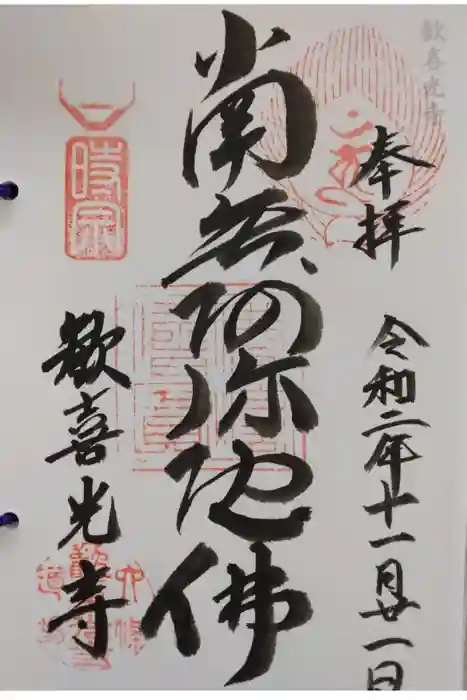 歓喜光寺
奉拝
令和二年十一月廿一日
南無阿弥陀佛
時宗
歓喜光寺